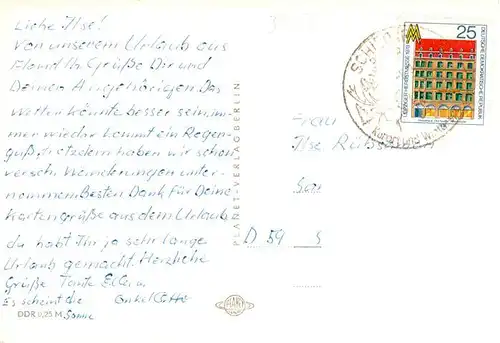 Liebe Ilse!
Von unserem Urlaub aus
Grüße Dir und
Deinen Angehörigen Das
Wetter könnte besser sein, im-
mer wieder kommt ein Regen-
guß, trotzdem haben wir schon
versch. Wanderungen unter-
nommem. Besten Dank für Deine
Kartengrüße aus dem Urlaub
du habt Ihr ja sehr lange
Urlaub gemacht. Herzliche
Grüße Tante Ella u.
Es scheint die Onkel Otto
Sonne
DDR 0,25 M
PLANET-VERLAG BERLIN
PLANET
Frau
Ilse
D 59 S
25
DEUTSCHE DEMOKRATISCHE REPUBLIK
SCHI